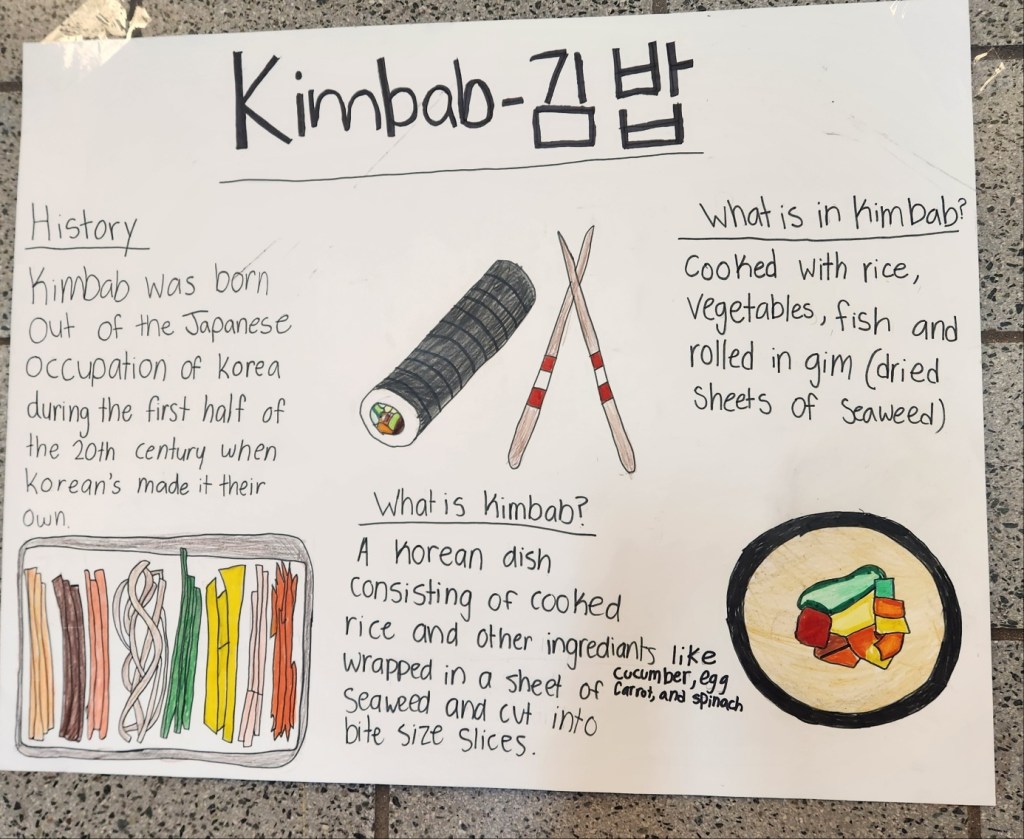 Kimbab-김밥
History
Kimbab was born
out of the Japanese
occupation of Korea
during the first half of
the 20th century when
Korean's made it their
own.
What is in Kimbab?
Cooked with rice,
vegetables, fish and
rolled in gim (dried
sheets of seaweed)
What is Kimbab?
A Korean dish
consisting of cooked
rice and other ingredients like
cucumber, egg
carrot, and spinach
wrapped in a sheet of
seaweed and cut into
bite size slices.